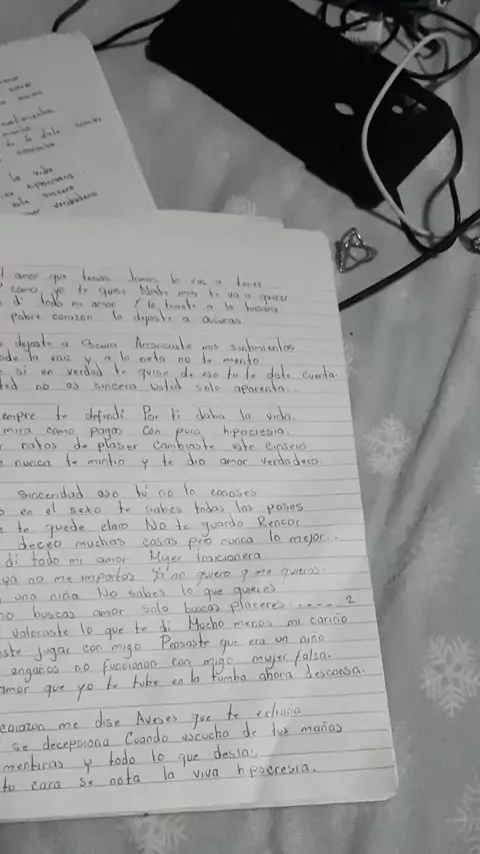 vida
hipocresia
sincero
verdadero
amor que tenias Jamas lo vas a tener
como yo te quise Nadie mas te va a querer
di todo mi amor Y lo tiraste a la basura
Pobre corazon lo dejaste a
dejaste a Arrancaste mis sentimientos
la raiz y a la neta no te miento
si en verdad te quise de eso tu te diste cuenta.
no es sincera Usted solo aparenta..
te defendi Por ti daba la vida.
mira como pagas Con pura hipocresia.
ratos de plaser Cambiaste este sinsero
nunca te mintio y te dio amor verdadero.
Sinceridad aso tú no lo conoses
en el sexo te sabes todas las poses
te quede claro No te guardo Rencor
deceo muchas cosas pero nunca lo mejor..
di todo mi amor Mujer traicionera
ya no me importas Yi no quiero q me quieras.
una niña No sabes lo que quieres
buscas amor Solo buscas placeres...... 2
valoraste lo que te di Mucho menos mi cariño
jugar con migo Pensaste que era un niño
engaños no funcionan con migo mujer falsa.
amor que yo te tube en la tumba ahora descansa.
corazon me dise Aveses que te extraña
se decepsiona Cuando escucha de tus mañas
mentiras y todo lo que desia.
tu cara se nota la viva hipocresia.